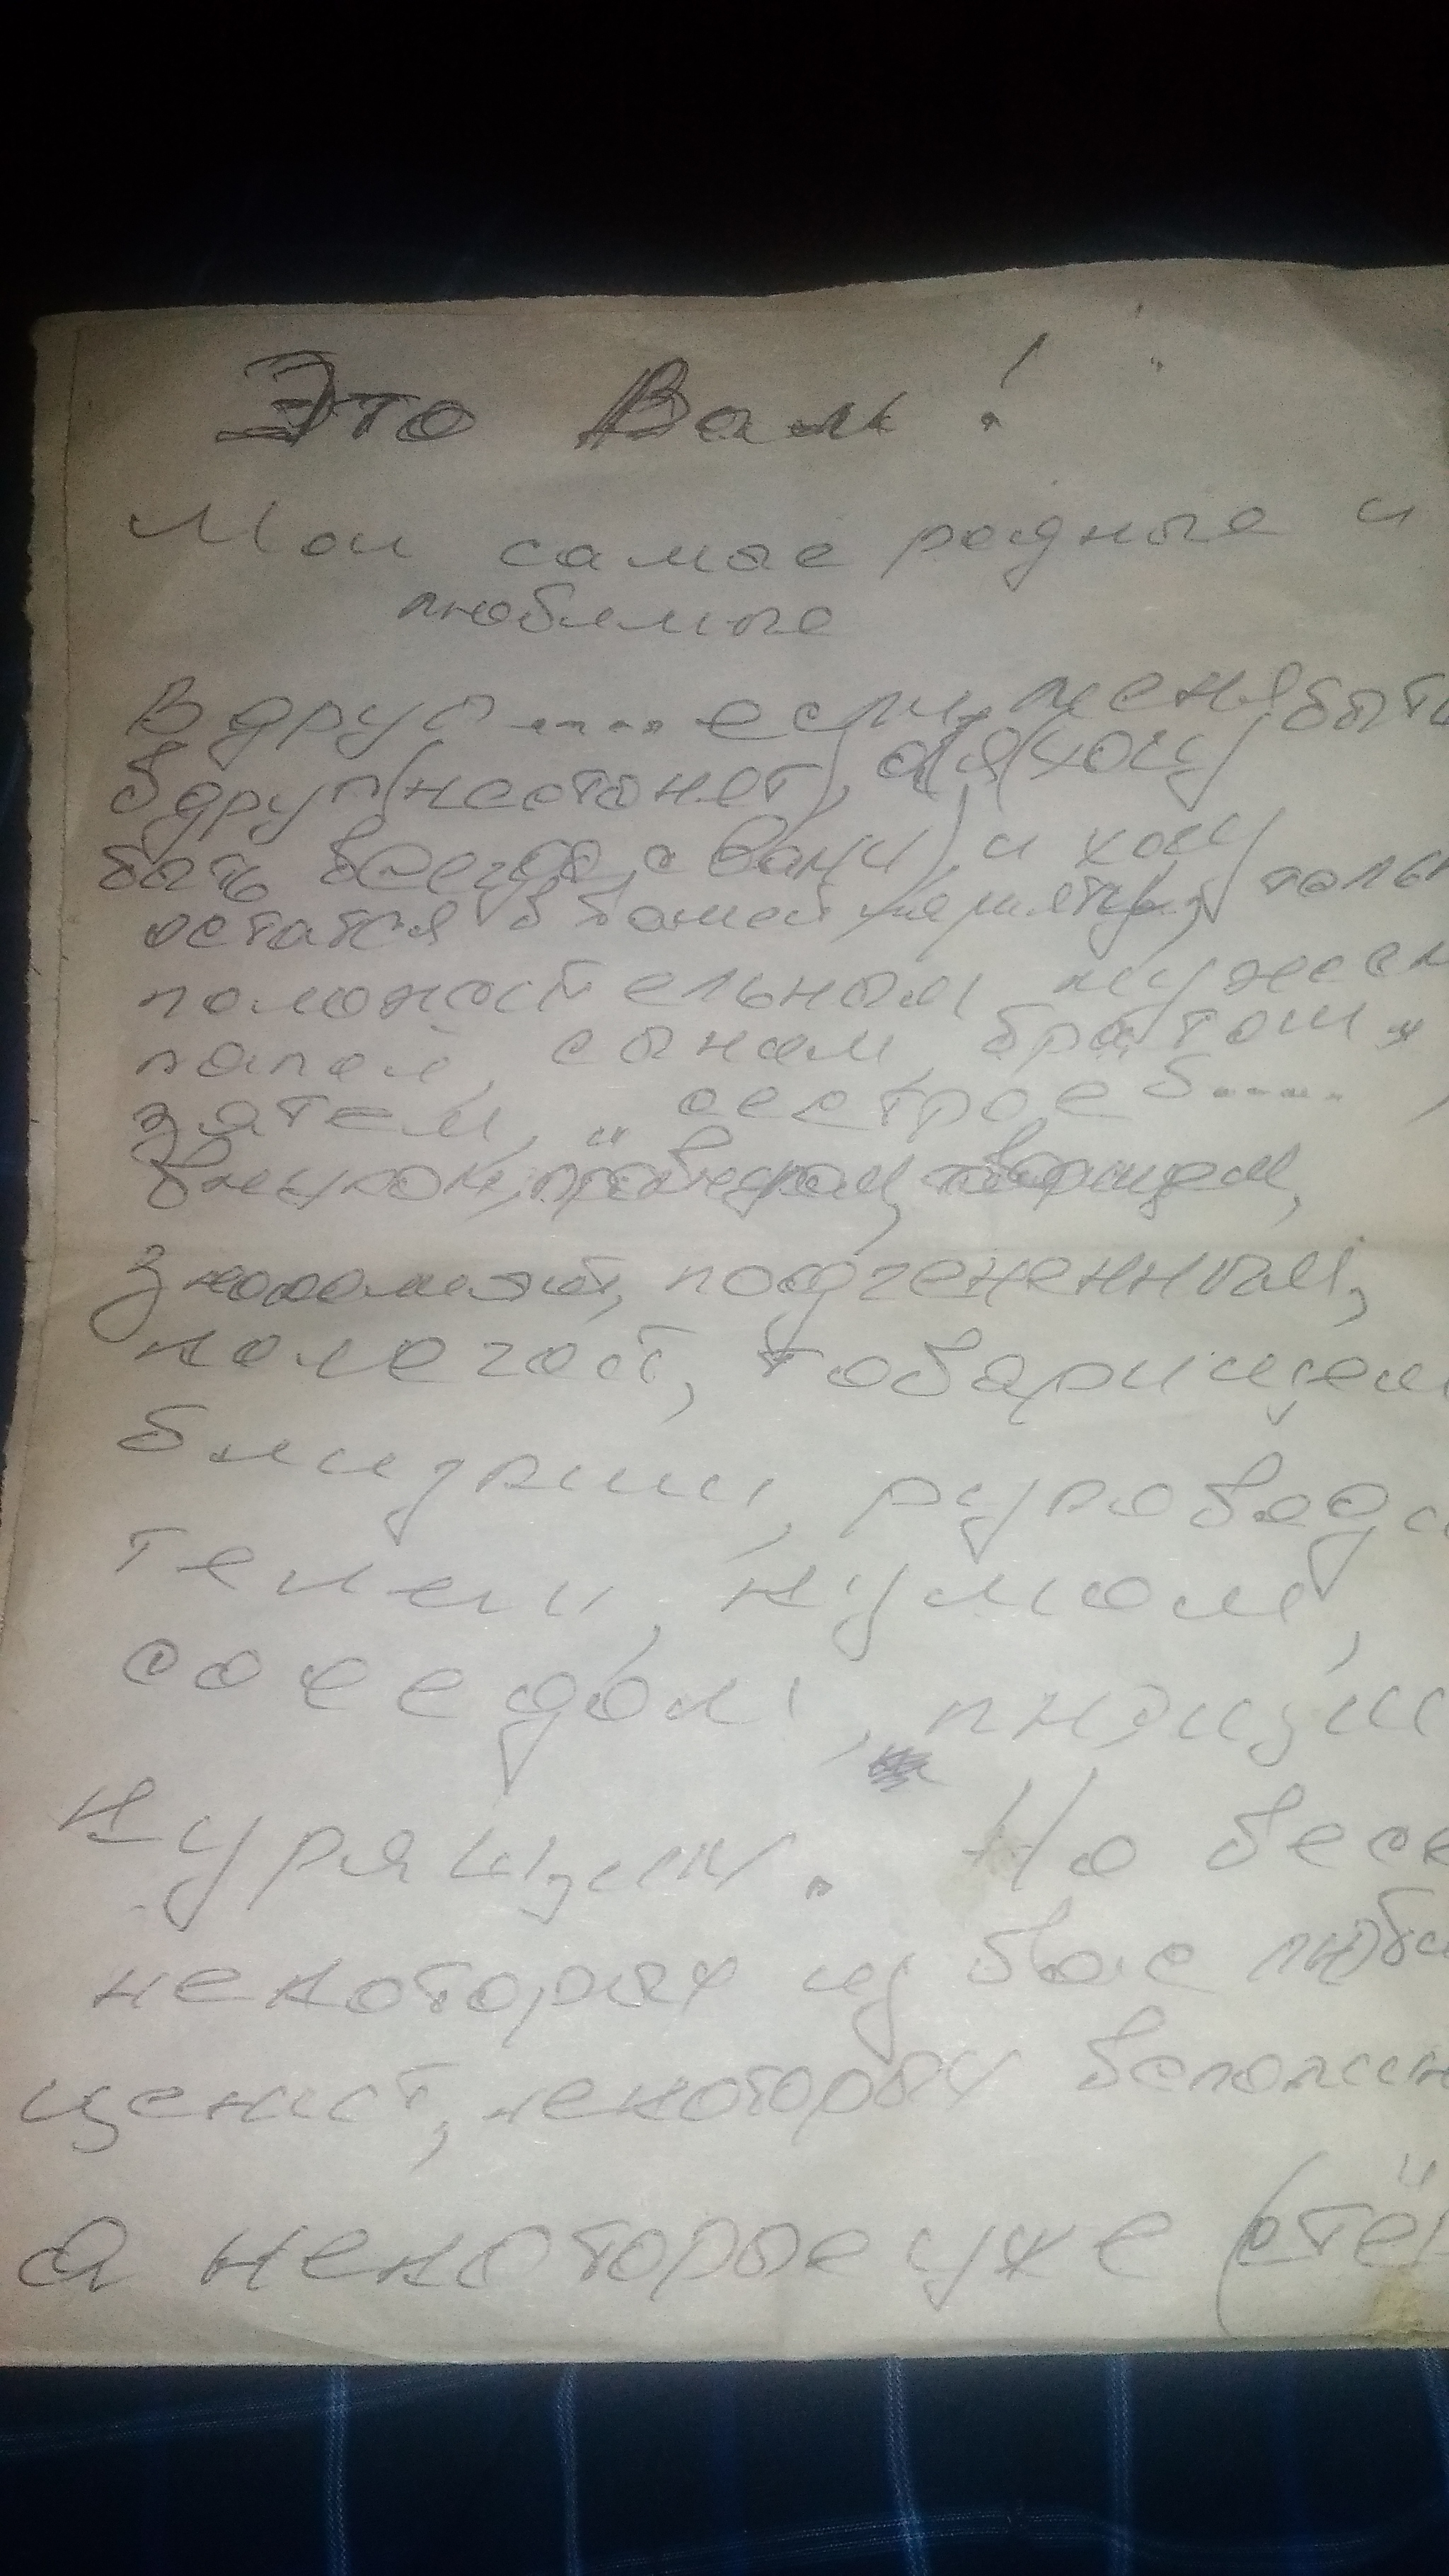 Это Вам!
Мои самые родные и
любимые
Вдруг.....если меня быть
вдруг (не станет), а (я (хочу
быть всегда с вами) и хочу
остатся в вашей памяти,
положительным мужем
папой, сыном, братом,
зятем, "сестрое б.....,
внуком,
знакомый, подчененным,
колегой, товарищем
близким, руковади
телем, кумом,
соседом, пющим
курящим. Но
некоторых из вас
ценит, некоторых
а некоторые уже